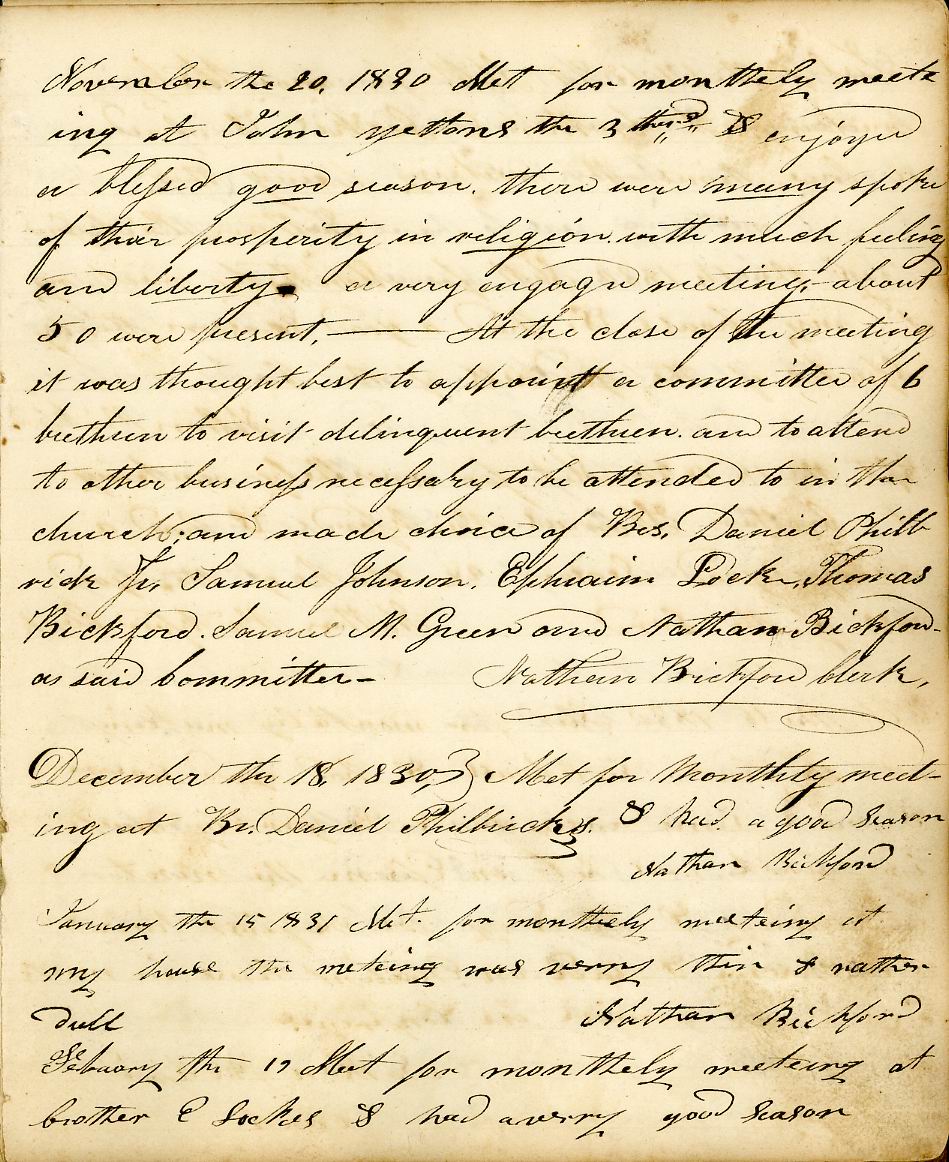 November the 20, 1830 Met for monthely meete
ing at John yettons the 3 third & enjoye
a blessed good season. there were meeny spoke
of their prosperity in religion. with much feeling
and liberty. a very engage meeting, about
50 were present, — At the close of the meeting
it was thought best to appoint a committee of 6
bretheren to visit delinquent bretheren. and to attend
to other business necessary to be attended to in the
church; and made choice of Brs. Daniel Philb
rick Jr. Samuel Johnson. Ephraim Lock, Thomas
Bickford. Samuel M. Green and Nathan Bickford-
as said Committee- Nathan Bickford Clerk,
December the 18, 1830,} Met for Monthly meet-
ing at Br. Daniel Philbricks. & had a good season
Nathan Bickford
January the 15 1831 Met for monthely meeteing at
my house the meteing was verry thin & rather
dull Nathan Bickford
Febuary the 19 Meet for monthely meeteing at
brother E Lockes & had a verry good season